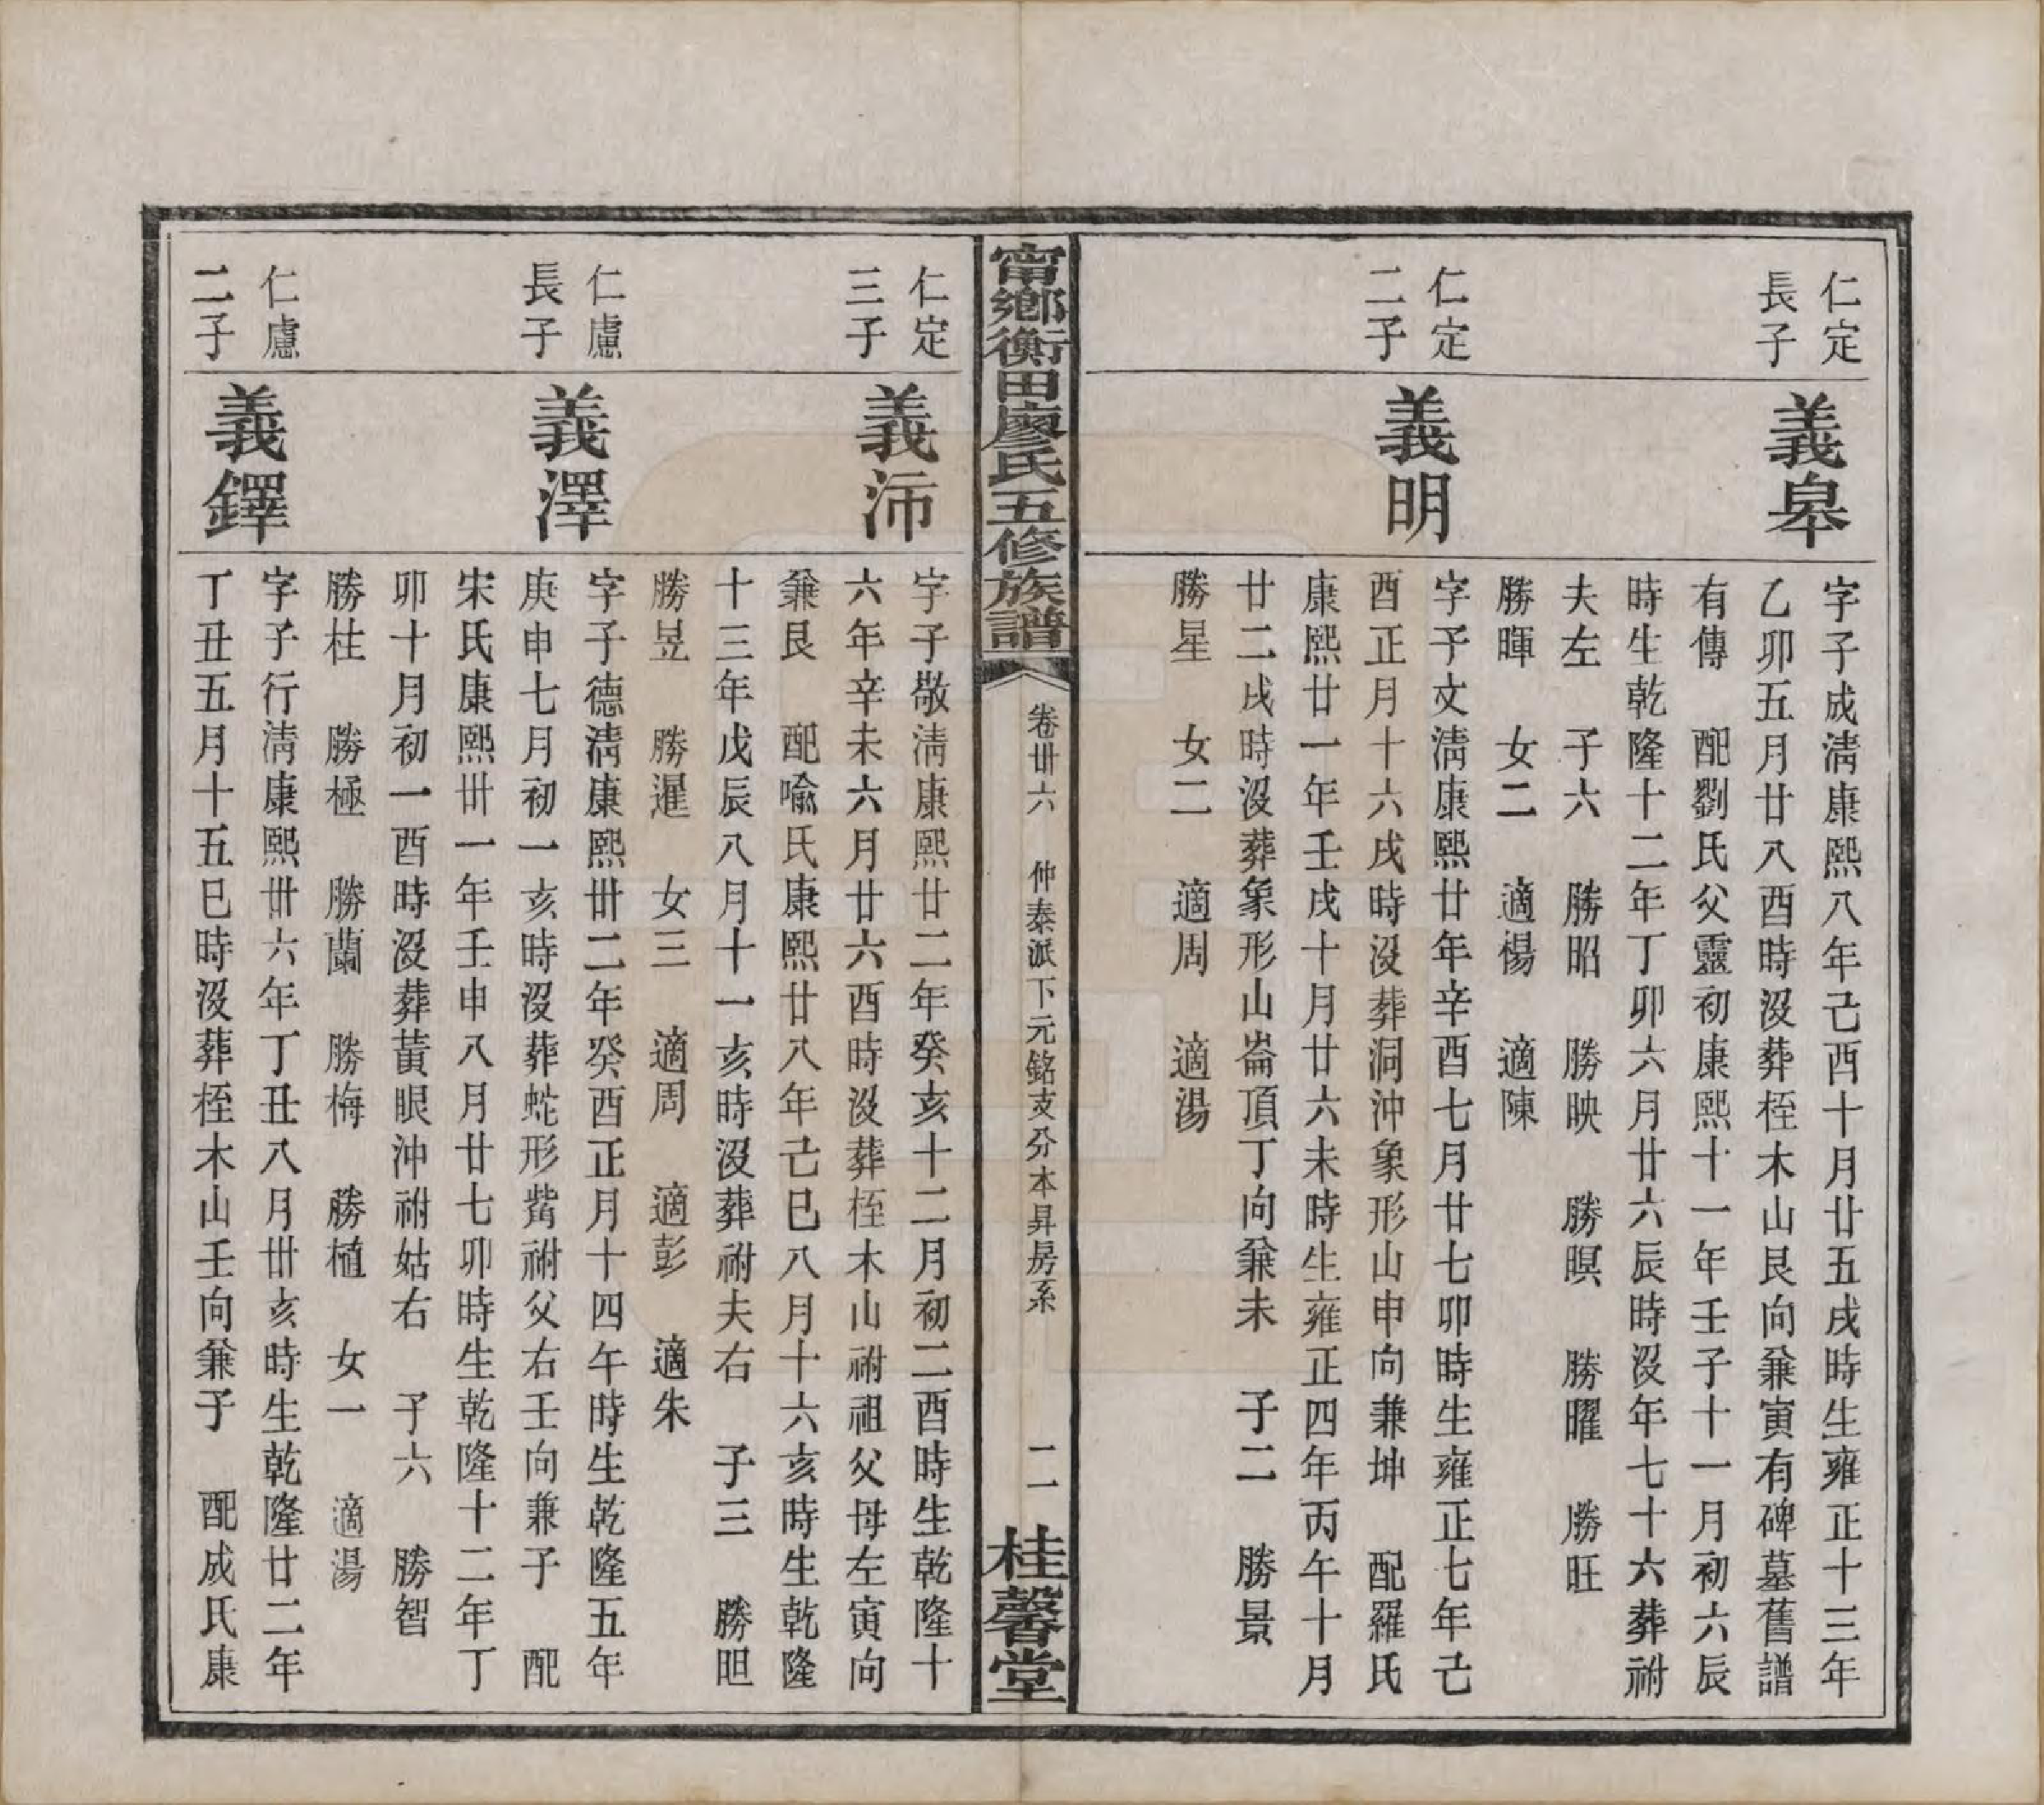 仁定
長子
義皋
字子成淸康熙八年己酉十月廿五戌時生雍正十三年
乙卯五月廿八酉時沒葬桎木山艮向兼寅有碑墓舊譜
有傳 配劉氏父靈初康熙十一年壬子十一月初六辰
時生乾隆十二年丁卯六月廿六辰時沒年七十六葬祔
夫左 子六 勝昭 勝映 勝暝 勝曜 勝旺
勝暉 女二 適楊 適陳
仁定
二子
義明
字予文淸康熙廿年辛酉七月廿七卯時生雍正七年己
酉正月十六戌時沒葬洞沖象形山申向兼坤 配羅氏
康熙廿一年壬戌十月廿六未時生雍正四年丙午十月
廿二戌時沒葬象形山崙頂丁向兼未 子二 勝景
勝星 女二 適周 適湯
甯鄉衡田廖氏五修族譜
卷卅六 仲泰派下元銘支分本昇房系
二
桂馨堂
仁定
三子
義沛
字子敬淸康熙廿二年癸亥十二月初二酉時生乾隆十
六年辛未六月廿六酉時沒葬桎木山祔祖父母左寅向
兼艮 配喻氏康熙廿八年己巳八月十六亥時生乾隆
十三年戊辰八月十一亥時沒葬祔夫右 子三 勝昍
勝昱 勝暹 女三 適周 適彭 適朱
仁慮
長子
義澤
字子德淸康熙卅二年癸酉正月十四午時生乾隆五年
庚申七月初一亥時沒葬蛇形觜祔父右壬向兼子 配
宋氏康熙卅一年壬申八月廿七卯時生乾隆十二年丁
卯十月初一酉時沒葬黃眼沖祔姑右 子六 勝智
勝柱 勝極 勝蘭 勝梅 勝植 女一 適湯
仁慮
二子
義鐸
字子行淸康熙卅六年丁丑八月卅亥時生乾隆廿二年
丁丑五月十五巳時沒葬桎木山壬向兼子 配成氏康